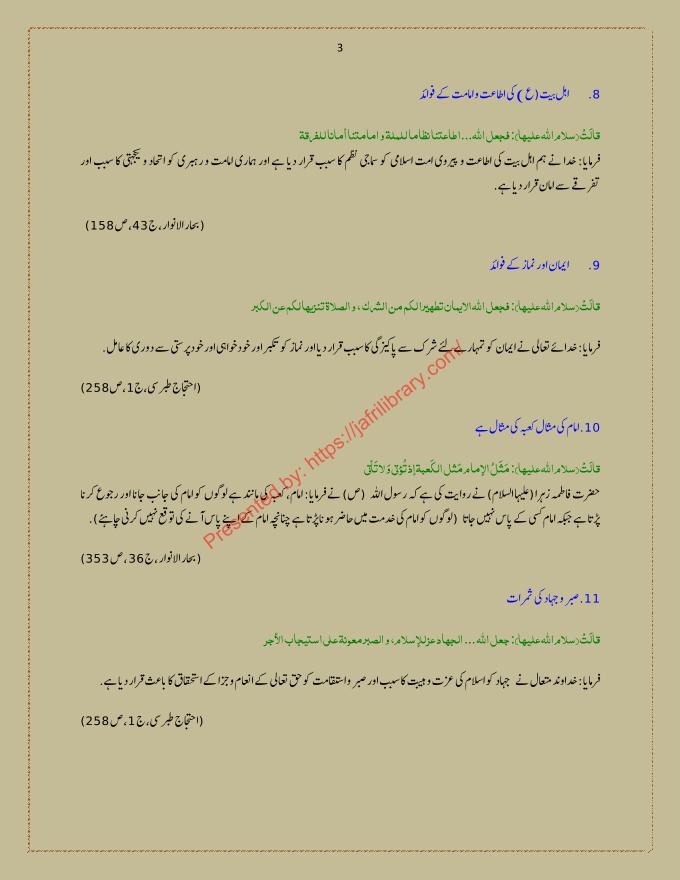 3
8. اہل بیت (ع) کی اطاعت و امامت کے فوائد
قالَتْ (سلام الله علیها): فجعل الله... اطاعتنا نظاما للملة و امامتنا أمانا للفرقة
فرمایا: خدا نے ہم اہل بیت کی اطاعت و پیروی امت اسلامی کو سماجی نظم کا سبب قرار دیا ہے اور ہماری امامت و رہبری کو اتحاد و یکجہتی کا سبب اور
تفرقے سے امان قرار دیا ہے.
(بحارالانوار، ج43، ص158)
9. ایمان اور نماز کے فوائد
قالَتْ (سلام الله علیها): فجعل الله الایمان تطهیرا لکم من الشرك، و الصلاة تنزیها لکم عن الکبر
فرمایا: خدائے تعالی نے ایمان کو تمہارے لئے شرک سے پاکیزگی کا سبب قرار دیا اور نماز کو تکبر اور خودخواہی اور خود پرستی سے دوری کا عامل.
(احتجاج طبرسی، ج1، ص258)
10. امام کی مثال کعبہ کی مثال ہے
قالَتْ (سلام الله علیها): مَثَلُ الإمام مَثل الکَعبة إذ تُؤتی وَ لا تَأتی
حضرت فاطمہ زہرا (علیہا السلام) نے روایت کی ہے کہ رسول اللہ (ص) نے فرمایا: امام، کعبہ کی مانند ہے لوگوں کو امام کی جانب جانا اور رجوع کرنا
پڑتا ہے جبکہ امام کسی کے پاس نہیں جاتا (لوگوں کو امام کی خدمت میں حاضر ہونا پڑتا ہے چنانچہ امام کے اپنے پاس آنے کی توقع نہیں کرنی چاہئے).
(بحارالانوار، ج36، ص353)
11. صبر و جہاد کی ثمرات
قالَتْ (سلام الله علیها): جعل الله ... الجهاد عز للإسلام، و الصبر معونة علی استیجاب الأجر
فرمایا: خداوند متعال نے جہاد کو اسلام کی عزت و ہیبت کا سبب اور صبر و استقامت کو حق تعالی کے انعام و جزا کے استحقاق کا باعث قرار دیا ہے.
(احتجاج طبرسی، ج1، ص258)
Presented by: https://jafrilibrary.com/